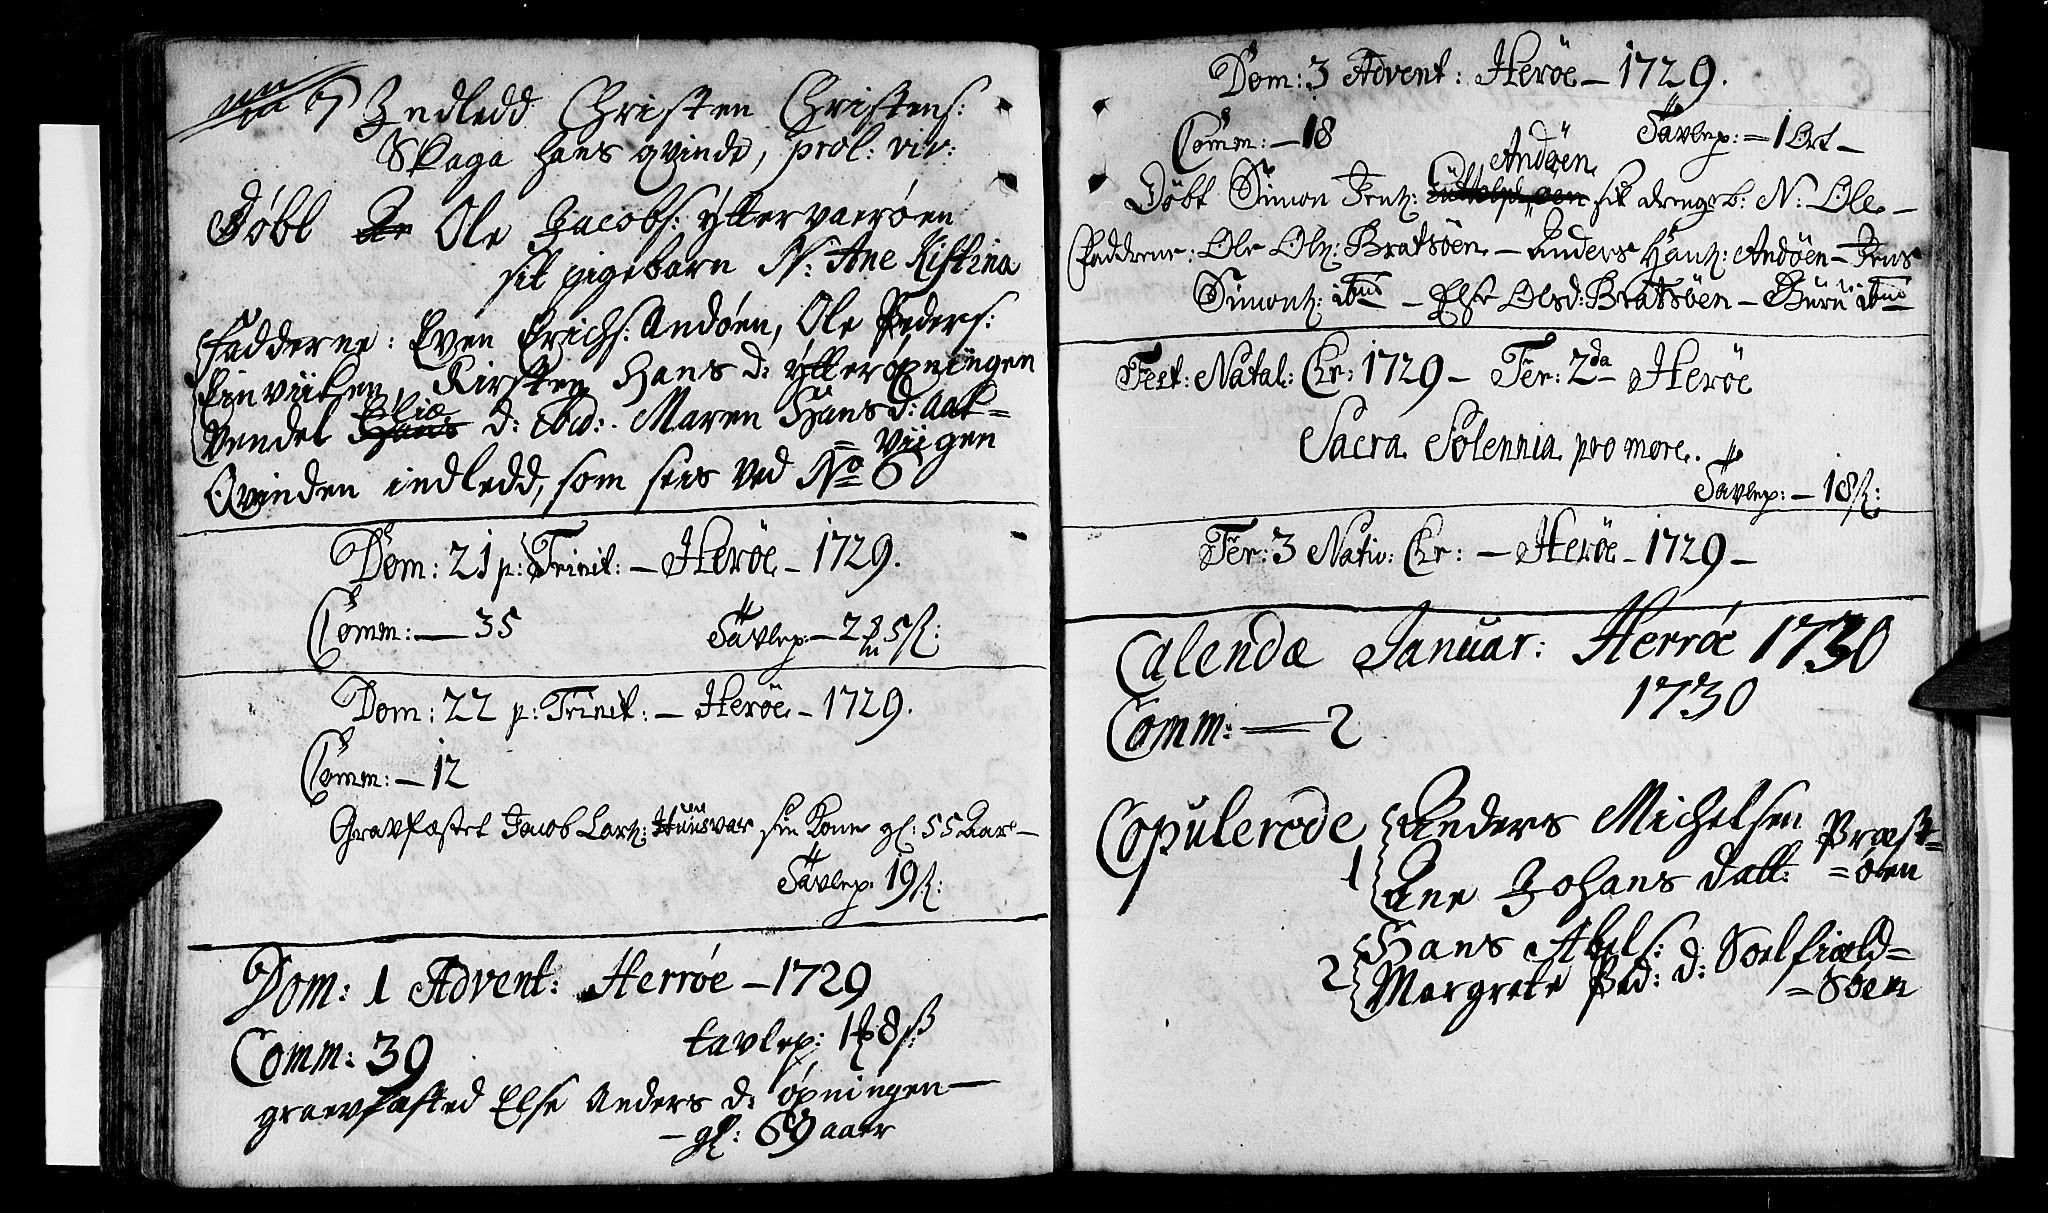 7 Indledd Christen Christens:
Skaga hans qvinde, prol: vir:
Døbt Ole Jacobs: ytterværøen
sit pigebarn N: Ane Kistina
Fadderne: Even Erichs: Andøen, Ole Peders:
Einviiken, Kirsten Hans d: ytterøpningen
Vendel Eliæ d: ibid: Maren Hans d: aak=
viigen
Qvinden indledd, som sees ved No 6
Dom: 21 p: Trinit: – Herøe – 1729.
Comm: — 35 Tavlep: – 2 5 ß:
Dom: 22 p: Trinit: – Herøe – 1729.
Comm: – 12
Gravfæstet Jacob Larß: Huusvær sin Kone gl: 55 Aar –
Tavlep: 19 ß:
Dom: 1 Advent: Herrøe – 1729
Comm: 39 tavlep: 1 8 ß:
graevfæsted Else Anders d: øpningen –
– gl: 69 aaer
Dom: 3 Advent: Herøe – 1729.
Comm: – 18 Tavlep: = 1 Ort –
Andøen
Døbt Simon Jenß: sit drengeb: N: Ole –
Faddrene: Ole Olß: Bratsöen – Anders Hanß: Andöen – Jens
Simonß: ibid – Else Olsd: Bratsöen – Guru ibid
Fest: Natal: Chr: 1729 – Fer: 2da Herøe
Sacra Solennia pro more.
Tavlep: – 18 ß:
Fer: 3 Nativ: Chr: – Herøe – 1729 –
Calendæ Januar: Herrøe 1730
1730
Comm: — 2
Copulerede Anders Michelsen Præst=
1 Ane Johans datt: =øen
Hans Abels: Soelfiæld=
2 Margrete Ped: d: =Søen